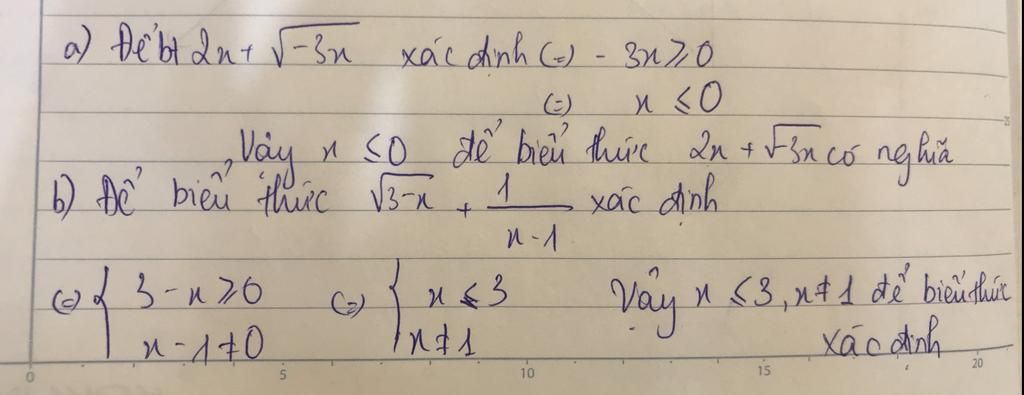 a) Để bt 2x + √-3x xác định (=) - 3x ≥ 0
(=) x ≤ 0
Vậy x ≤ 0 để biểu thức 2x + √-3x có nghĩa
b) Để biểu thức √3-x + 1/x-1 xác định
(=) { 3-x ≥ 0 (=) { x ≤ 3 Vậy x ≤ 3, x ≠ 1 để biểu thức
x-1 ≠ 0 x ≠ 1 xác định
0 5 10 15 20